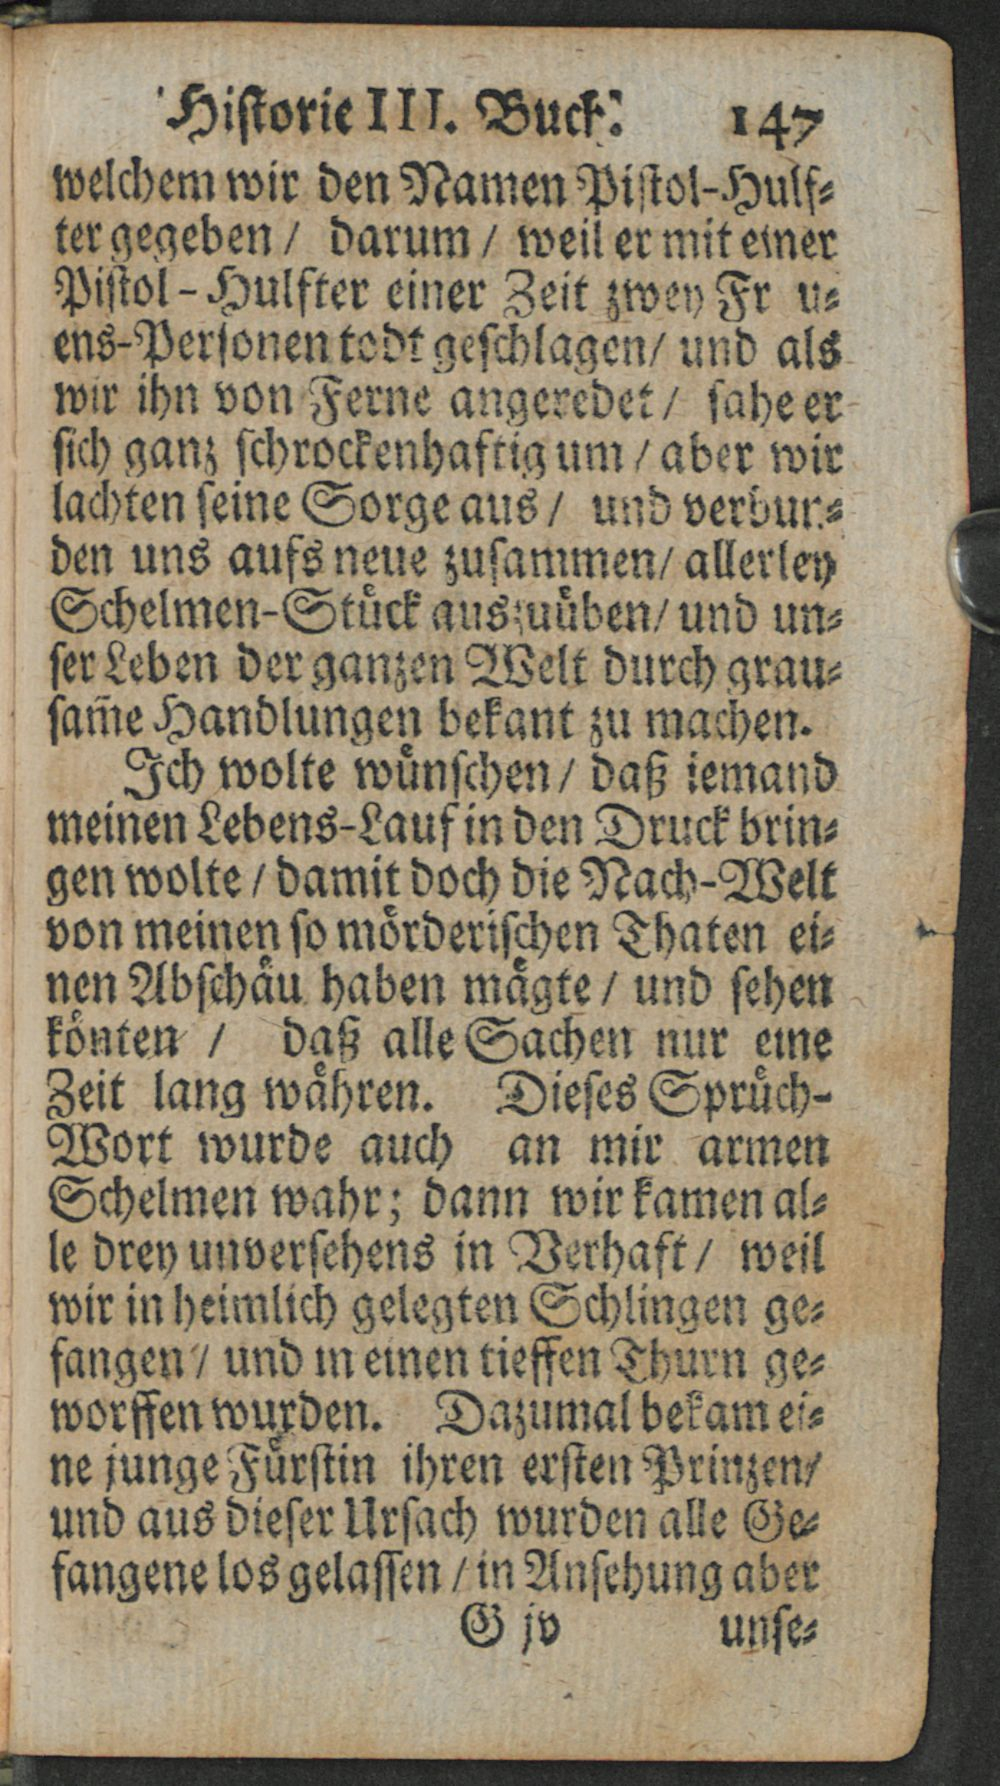 Historie III. Buch. 147
welchem wir den Namen Pistol-Hulf-
ter gegeben / darum / weil er mit einer
Pistol-Hulfter einer Zeit zwey Fr u-
ens-Personen todt geschlagen / und als
wir ihn von Ferne angeredet / sahe er
sich ganz schrockenhaftig um / aber wir
lachten seine Sorge aus / und verbun-
den uns aufs neue zusammen / allerley
Schelmen-Stuͤck auszuuͤben / und un-
ser Leben der ganzen Welt durch grau-
sam̃e Handlungen bekant zu machen.
Ich wolte wuͤnschen / daß iemand
meinen Lebens-Lauf in den Druck brin-
gen wolte / damit doch die Nach-Welt
von meinen so moͤrderischen Thaten ei-
nen Abschaͤu haben maͤgte / und sehen
koͤnten / daß alle Sachen nur eine
Zeit lang waͤhren. Dieses Spruͤch-
Wort wurde auch an mir armen
Schelmen wahr; dann wir kamen al-
le drey unversehens in Verhaft / weil
wir in heimlich gelegten Schlingen ge-
fangen / und in einen tieffen Thurn ge-
worffen wurden. Dazumal bekam ei-
ne junge Fuͤrstin ihren ersten Prinzen /
und aus dieser Ursach wurden alle Ge-
fangene los gelassen / in Ansehung aber
G jv unse-